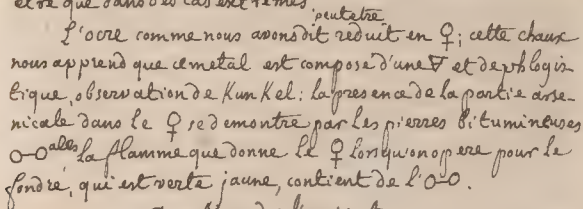 et ne que dans des cas extremes
peutetre
L'ocre comme nous avons dit reduit en ♀; cette chaux
nous apprend que ce metal est composé d'une 🜃 et de phlogis
tique, observation de Kunkel: la presence de la partie arse-
nicale dans le ♀ se demontre par les pierres bitumineuses
o-o ales la flamme que donne le ♀ lorsqu'on opere pour le
fondre, qui est verte jaune, contient de l'o-o.